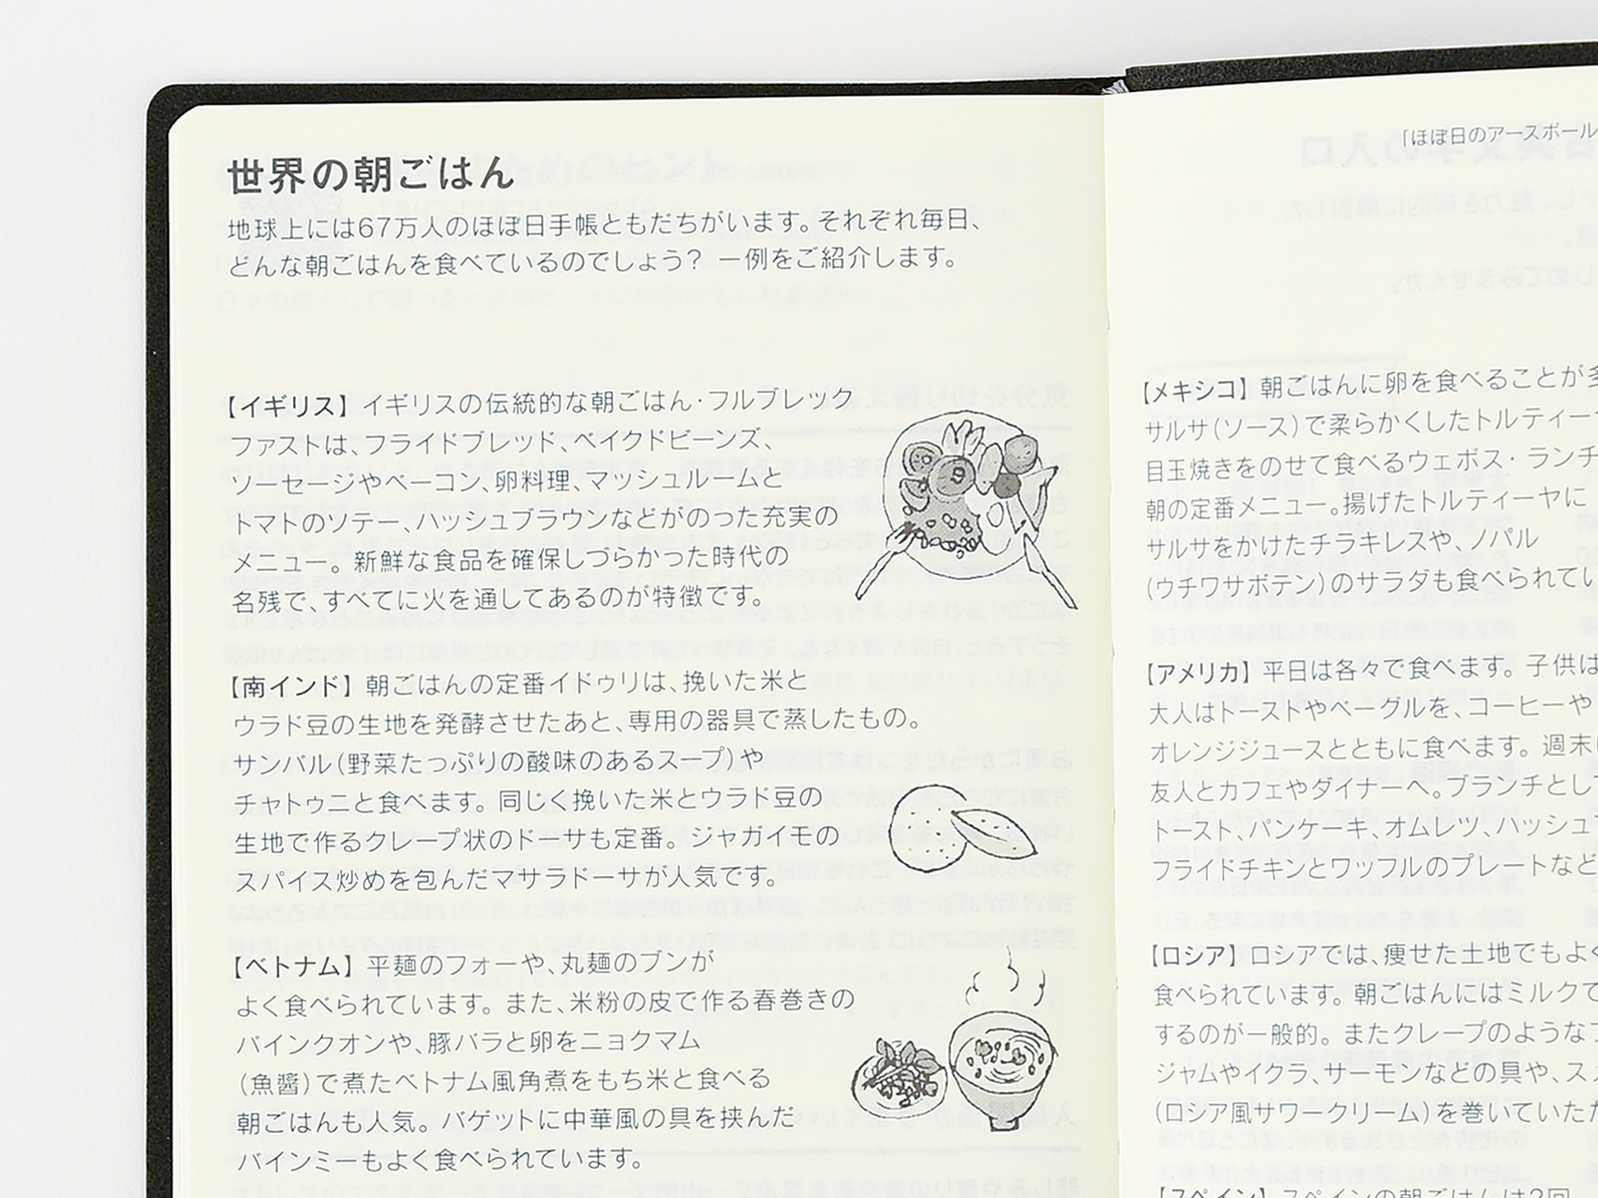 世界の朝ごはん
地球上には67万人のほぼ日手帳ともだちがいます。それぞれ毎日、
どんな朝ごはんを食べているのでしょう？ 一例をご紹介します。
【イギリス】イギリスの伝統的な朝ごはん・フルブレック
ファストは、フライドブレッド、ベイクドビーンズ、
ソーセージやベーコン、卵料理、マッシュルームと
トマトのソテー、ハッシュブラウンなどがのった充実の
メニュー。新鮮な食品を確保しづらかった時代の
名残で、すべてに火を通してあるのが特徴です。
【南インド】朝ごはんの定番イドゥリは、挽いた米と
ウラド豆の生地を発酵させたあと、専用の器具で蒸したもの。
サンバル（野菜たっぷりの酸味のあるスープ）や
チャトゥニと食べます。同じく挽いた米とウラド豆の
生地で作るクレープ状のドーサも定番。ジャガイモの
スパイス炒めを包んだマサラドーサが人気です。
【ベトナム】平麺のフォーや、丸麺のブンが
よく食べられています。また、米粉の皮で作る春巻きの
バインクオンや、豚バラと卵をニョクマム
（魚醬）で煮たベトナム風角煮をもち米と食べる
朝ごはんも人気。バゲットに中華風の具を挟んだ
バインミーもよく食べられています。
「ほぼ日のアースボール
【メキシコ】朝ごはんに卵を食べることが多
サルサ（ソース）で柔らかくしたトルティー
目玉焼きをのせて食べるウエボス・ランチ
朝の定番メニュー。揚げたトルティーヤに
サルサをかけたチラキレスや、ノパル
（ウチワサボテン）のサラダも食べられてい
【アメリカ】平日は各々で食べます。子供は
大人はトーストやベーグルを、コーヒーや
オレンジジュースとともに食べます。週末
友人とカフェやダイナーへ。ブランチとし
トースト、パンケーキ、オムレツ、ハッシュ
フライドチキンとワッフルのプレートなど
【ロシア】ロシアでは、痩せた土地でもよく
食べられています。朝ごはんにはミルクで
するのが一般的。またクレープのような
ジャムやイクラ、サーモンなどの具や、ス
（ロシア風サワークリーム）を巻いていただ
【スペイン】スペインの朝ごはんは2回